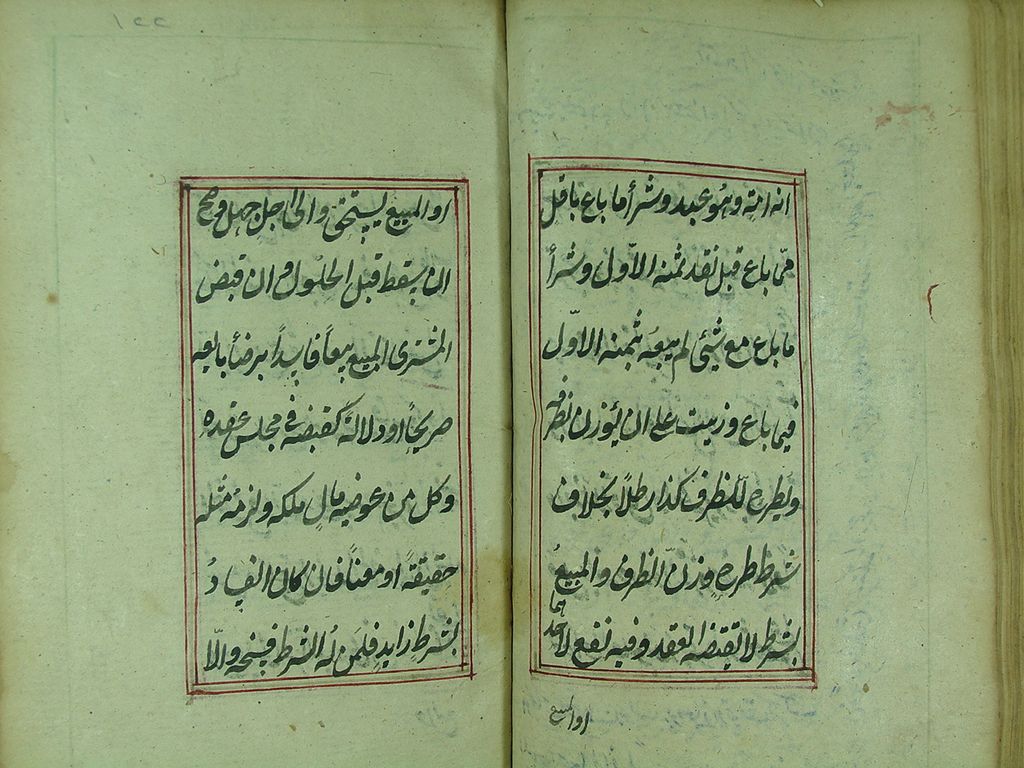 انه امة وهو عبد وشرأ ما باع باقل
ممّا باع قبل نقد ثمنه الاّول وشرأ
ما باع مع شئ لم يبعه بثمنه الاوّل
فيما باع وزيت على ان يؤزن بظرفه
ويطرح للظرف كذا رطلاً بخلاف
شرط طرح وزن الظرف والمبيعُ
بشرط لا يقتضه العقد وفيه نفع لاحدهما
او المبيع
١٢٢
او المبيع يستحق والى اجلٍ جهل وصح
ان يسقط قبل الحلول وان قبض
المشترى المبيع بيعاً فاسداً برضأ بايعه
صريحاً او دلالة كقبضه فى مجلس عقده
وكل من عوضيه مال ملكه ولزمه مثله
حقيقةً او معناً فان كان الفسادُ
بشرطٍ زايدٍ فلمن له الشرط فسخه والّا